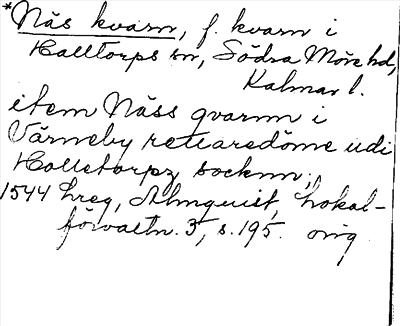 *Näs kvarn, f. kvarn i
Halltorps sn, Södra Möre hd,
Kalmar l.
item Näss qvarnn i
Värneby retearedöme udi
Halletorpz socknn;
1544 hreg, Almquist, Lokal-
förvaltn. 3, s. 195. orig